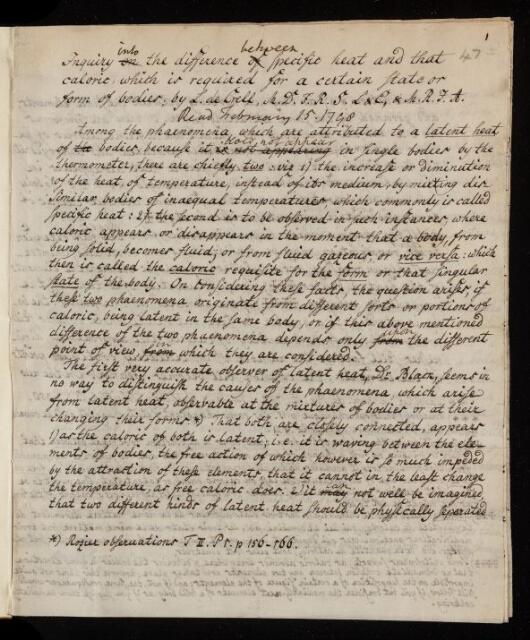 1
47
Inquiry on into the difference of between specific heat and that
caloric, which is required for a certain state or
form of bodies; by L. de Crell, M.D. F.R.S. L & E, & M.R.I.A.
Read February 15 1798
Among the phaenomena, which are attributed to a latent heat
of the bodies, because it is not appearing does not appear in single bodies by the
thermometer, there are chiefly two: viz 1) the increase or diminution
of the heat, of temperature, instead of its medium, by mixting dis
similar bodies of inaequal temperatures, which commonly is called
specific heat: 2) the second is to be observed in such instances, where
caloric appears or disappears in the moment that a body, from
being solid, becomes fluid; or from fluid gazeous, or vice versa: which
then is called the caloric requisite for the form or that singular
state of the body. On considering these facts, the question arises, if
these two phaenomena originate from different sorts or portions of
caloric, being latent in the same body, or if this above mentioned
difference of the two phaenomena depends only from upon the different
point of view, from in which they are considered.
The first very accurate observer of latent heat, Dr. Black, seems in
no way to distinguish the causes of the phaenomena, which arise
from latent heat, observable at the mixtures of bodies or at their
changing their forms *) That both are closely connected, appears
1) as the caloric of both is latent; i.e. it is waving between the ele-
ments of bodies, the free action of which however is so much impeded
by the attraction of these elements, that it cannot in the least change
the temperature, as free caloric does. 2) it may can not well be imagined,
that two different kinds of latent heat should be physically seperated
*) Rozier observations T II. P 1. p 156-166.